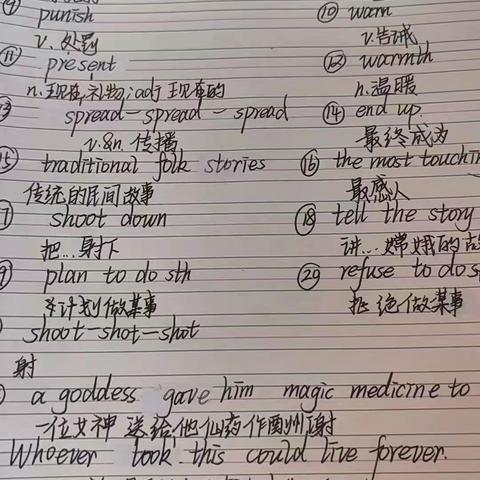 punish ⑩ warn
v. 处罚 v. 告诫
⑪ present ⑫ warmth
n. 现在,礼物; adj 现在的 n. 温暖
spread-spread-spread ⑭ end up
v.&n. 传播 最终成为
traditional folk stories ⑯ the most touchin
传统的民间故事 最感人
shoot down ⑱ tell the story
把...射下 讲...嫦娥的
plan to do sth ⑳ refuse to do s
计划做某事 拒绝做某事
shoot-shot-shot
射
a goddess gave him magic medicine to
一位女神送给他仙药作酬谢
Whoever took this could live forever.